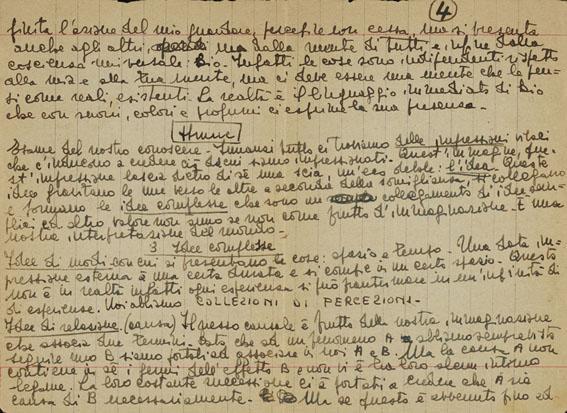 4
finita l'azione del mio guardare, percepire non cessa, ma si presenta
anche agli altri, ma dalla mente di tutti e infine dalla
coscienza universale: Dio. Infatti le cose sono indipendenti rispetto
alla mia e alla tua mente, ma ci deve essere una mente che la pen-
si come reali, esistenti. La realtà è il linguaggio immediato di Dio
che con suoni, colori e profumi ci esprime la sua presenza.
Hume
Esame del nostro conoscere. Innanzi tutto ci troviamo delle impressioni vivaci
che c'inducono a credere che siamo impressionati. Quest'immagine, que-
st'impressione lascia dietro di sé una scia, un'eco debole: l'idea. Queste
idee gravitano le une verso le altre a seconda della somiglianza, si collegano
e formano le idee complesse che sono un collegamento di idee sem-
plici ed altro valore non anno se non come frutto d'immaginazione. È una
nostra interpretazione del mondo.
3 Idee complesse
Idee di modi con cui si presentano le cose: spazio e tempo. Una data im-
pressione esterna à una certa durata e si compie in un certo spazio. Questo
non è in realtà infatti ogni esperienza si può frantumare in un'infinità di
di esperienze. Noi abbiamo COLLEZIONI DI PERCEZIONI.
Idee di relazione (causa) Il nesso causale è frutto della nostra immaginazione
che associa due termini. Dato che ad un fenomeno A abbiamo sempre visto
seguire uno B siamo portati ad associare in noi A e B. Ma la causa A non
contiene in sé i germi dell'effetto B e non vi è tra loro alcun intimo
legame. La loro costante successione ci à portati a credere che A sia
causa di B necessariamente. Ma se questo è avvenuto fino ad